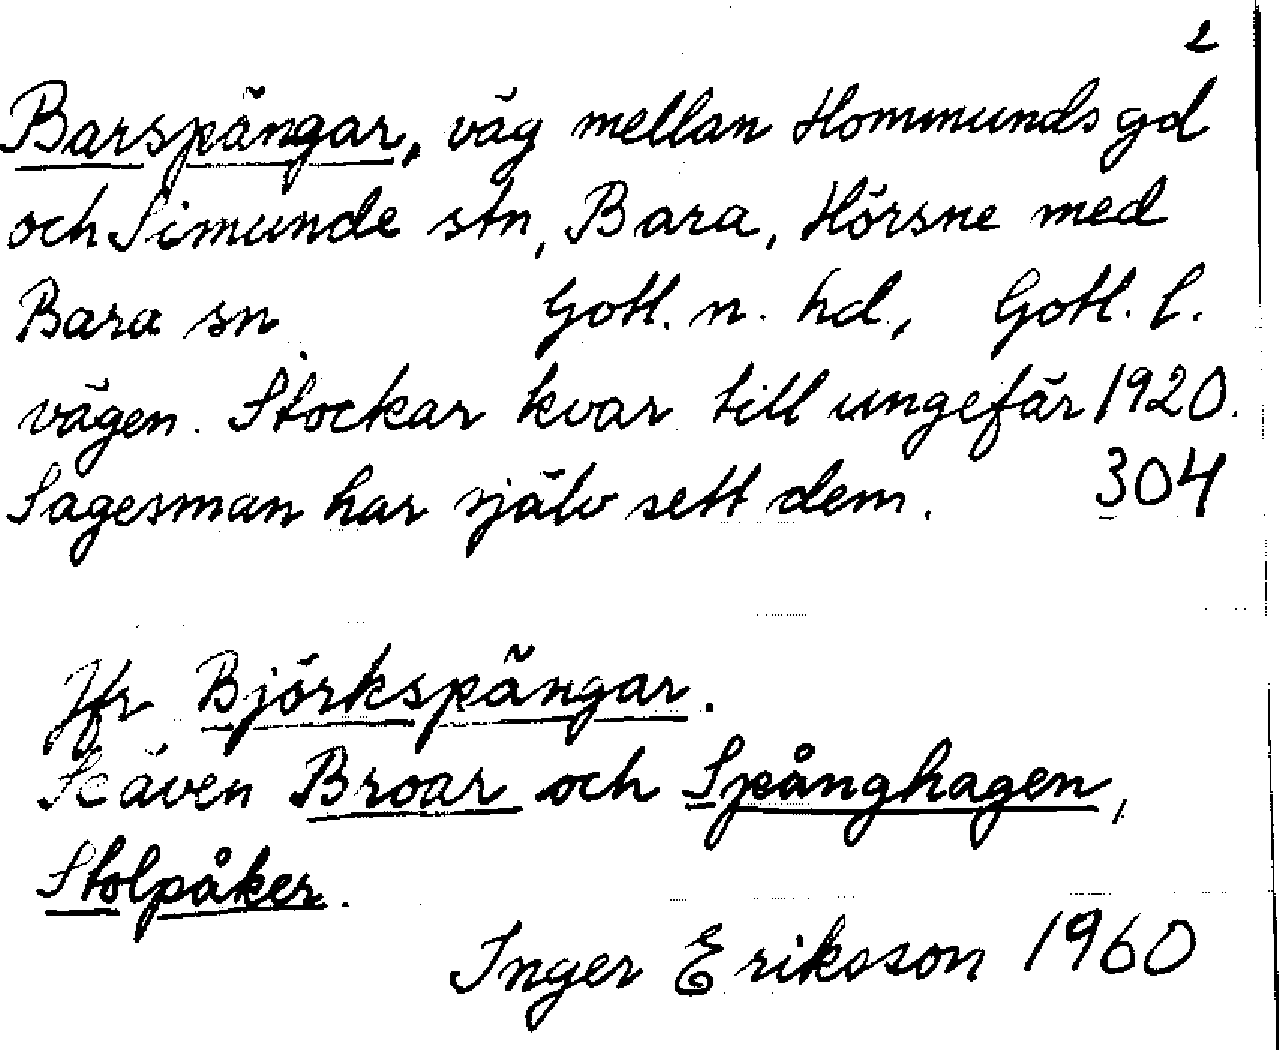 2
Barspängar, väg mellan Hommunds gd
och Simunde stn, Bara, Hörsne med
Bara sn Gotl. n. hd., Gotl. l.
vägen. Stockar kvar till ungefär 1920.
Sagesman har själv sett dem. 304
Jfr Björkspängar.
Se även Broar och Spånghagen,
Stolpåker.
Inger Eriksson 1960